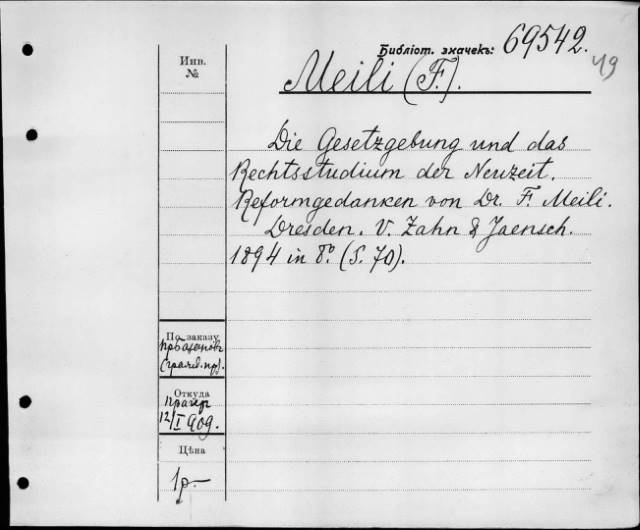 Библіот. значекъ: 69542.
49
Инв.
№
Meili (F.).
Die Gesetzgebung und das
Rechtsstudium der Neuzeit.
Reformgedanken von Dr. F. Meili.
Dresden. V. Zahn & Jaensch.
1894 in 8º (S. 70).
По заказу
Откуда
12/I 909.
Цѣна
1р—